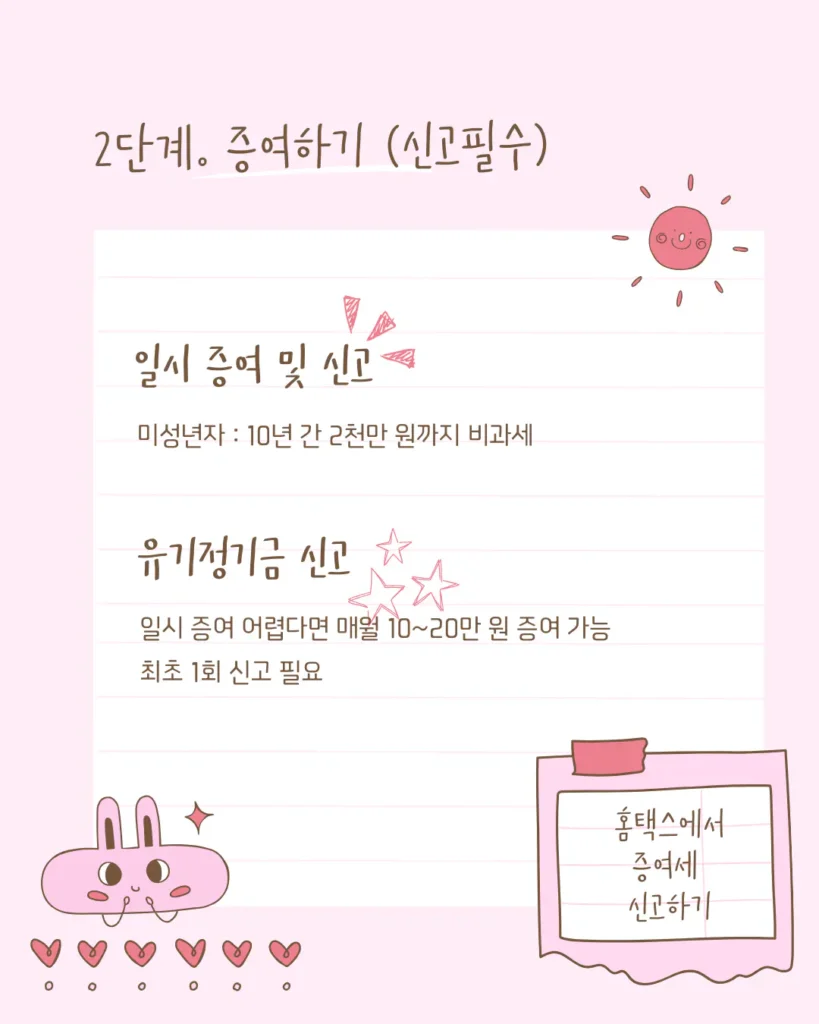 2단계. 증여하기 (신고필수)
일시 증여 및 신고
미성년자 : 10년 간 2천만 원까지 비과세
유기정기금 신고
일시 증여 어렵다면 매월 10~20만 원 증여 가능
최초 1회 신고 필요
홈택스에서
증여세
신고하기